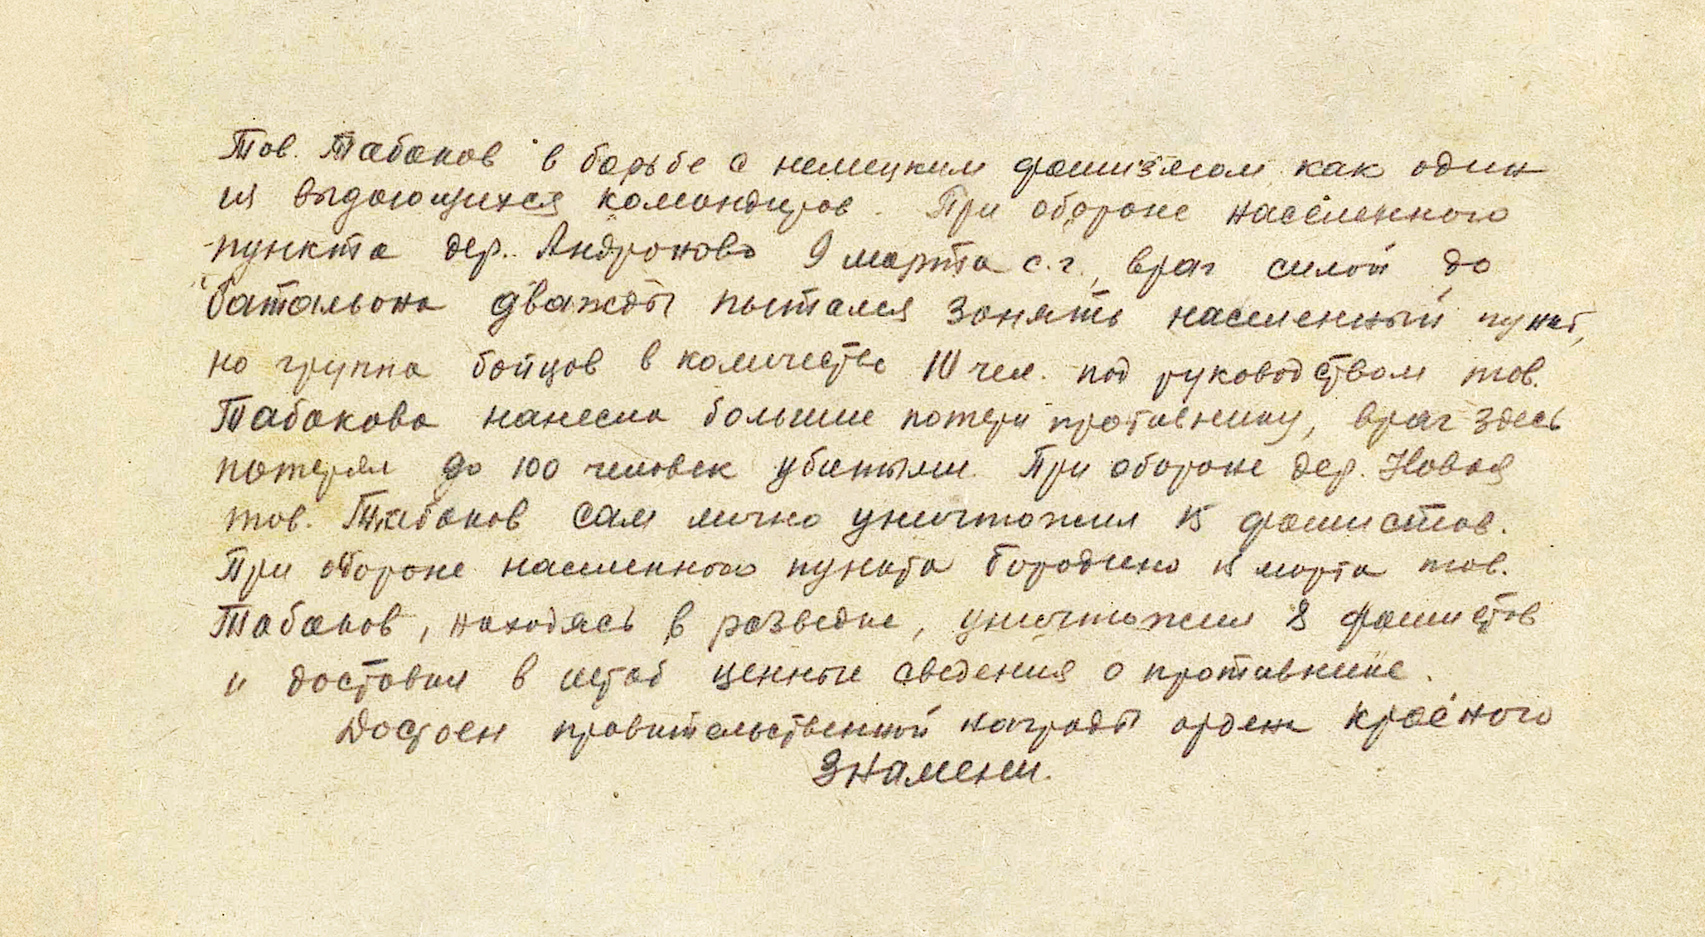 Тов. Табаков в борьбе с немецким фашизмом как один
из выдающихся командиров. При обороне населенного
пункта дер. Андроново 9 марта с.г., враг силой до
батальона дважды пытался занять населенный пункт,
но группа бойцов в количестве 10 чел. под руководством тов.
Табакова нанесла большие потери противнику, враг здесь
потерял до 100 человек убитыми. При обороне дер. Новая
тов. Табаков сам лично уничтожил 15 фашистов.
При обороне населенного пункта Бородино 15 марта тов.
Табаков, находясь в разведке, уничтожил 8 фашистов
и доставил в штаб ценные сведения о противнике.
Достоен правительственной награды орден Красного
Знамени.